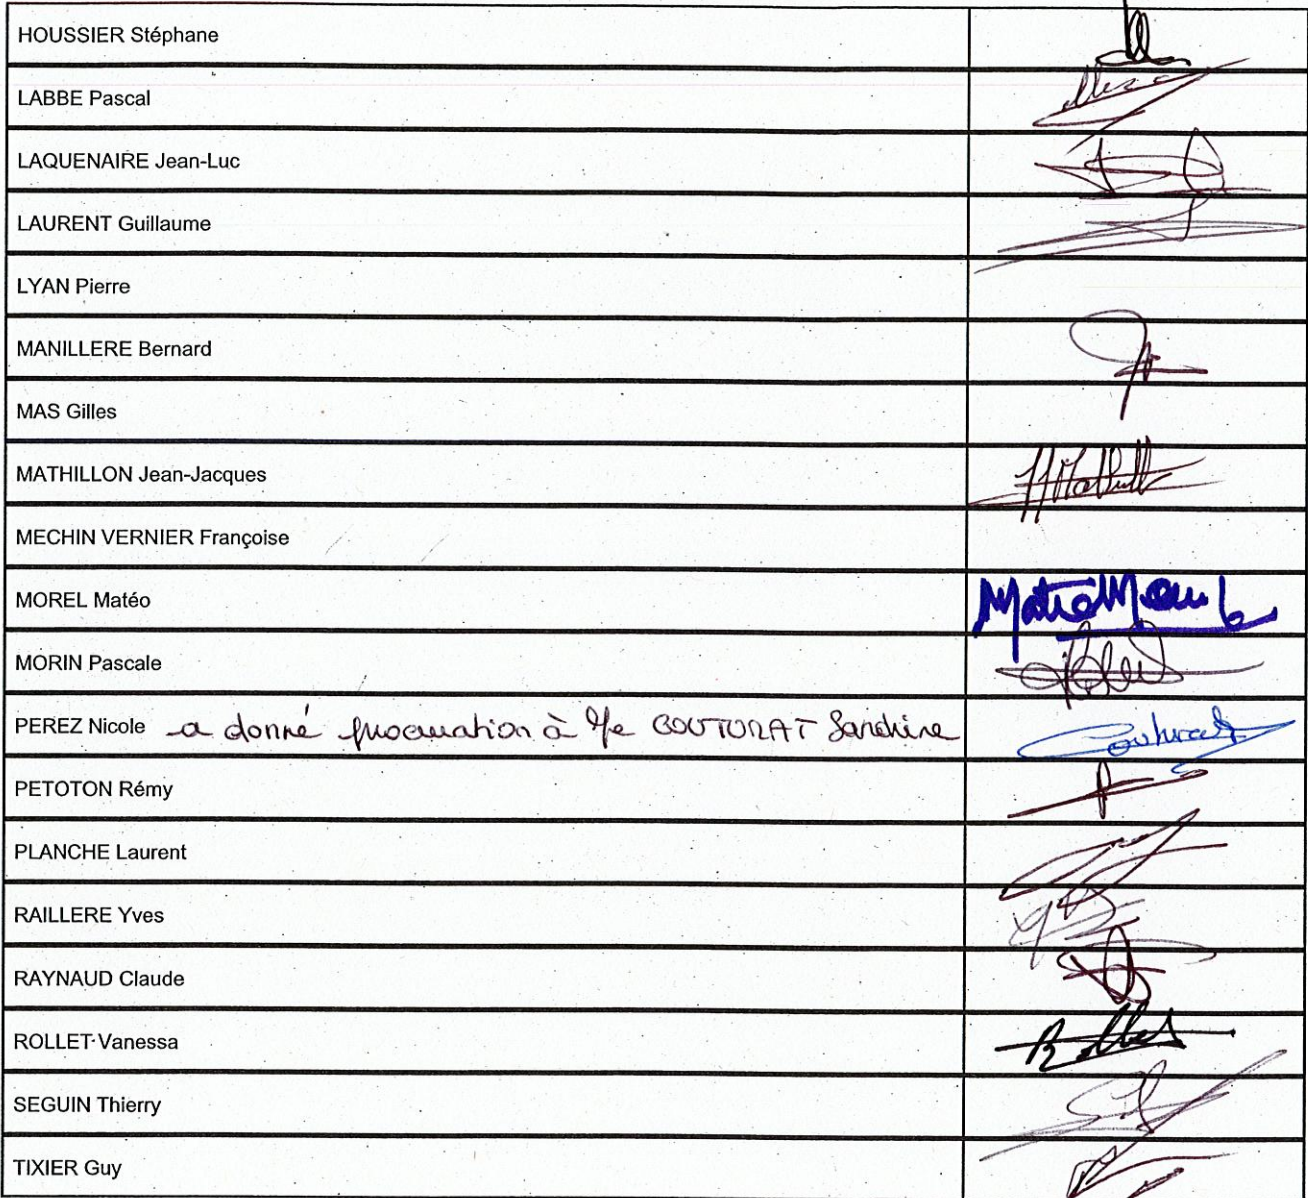 HOUSSIER Stéphane
LABBE Pascal
LAQUENAIRE Jean-Luc
LAURENT Guillaume
LYAN Pierre
MANILLERE Bernard
MAS Gilles
MATHILLON Jean-Jacques
MECHIN VERNIER Françoise
MOREL Matéo
MORIN Pascale
PEREZ Nicole a donné procuration à Me COUTURAT Sandrine Couturat
PETOTON Rémy
PLANCHE Laurent
RAILLERE Yves
RAYNAUD Claude
ROLLET Vanessa
SEGUIN Thierry
TIXIER Guy